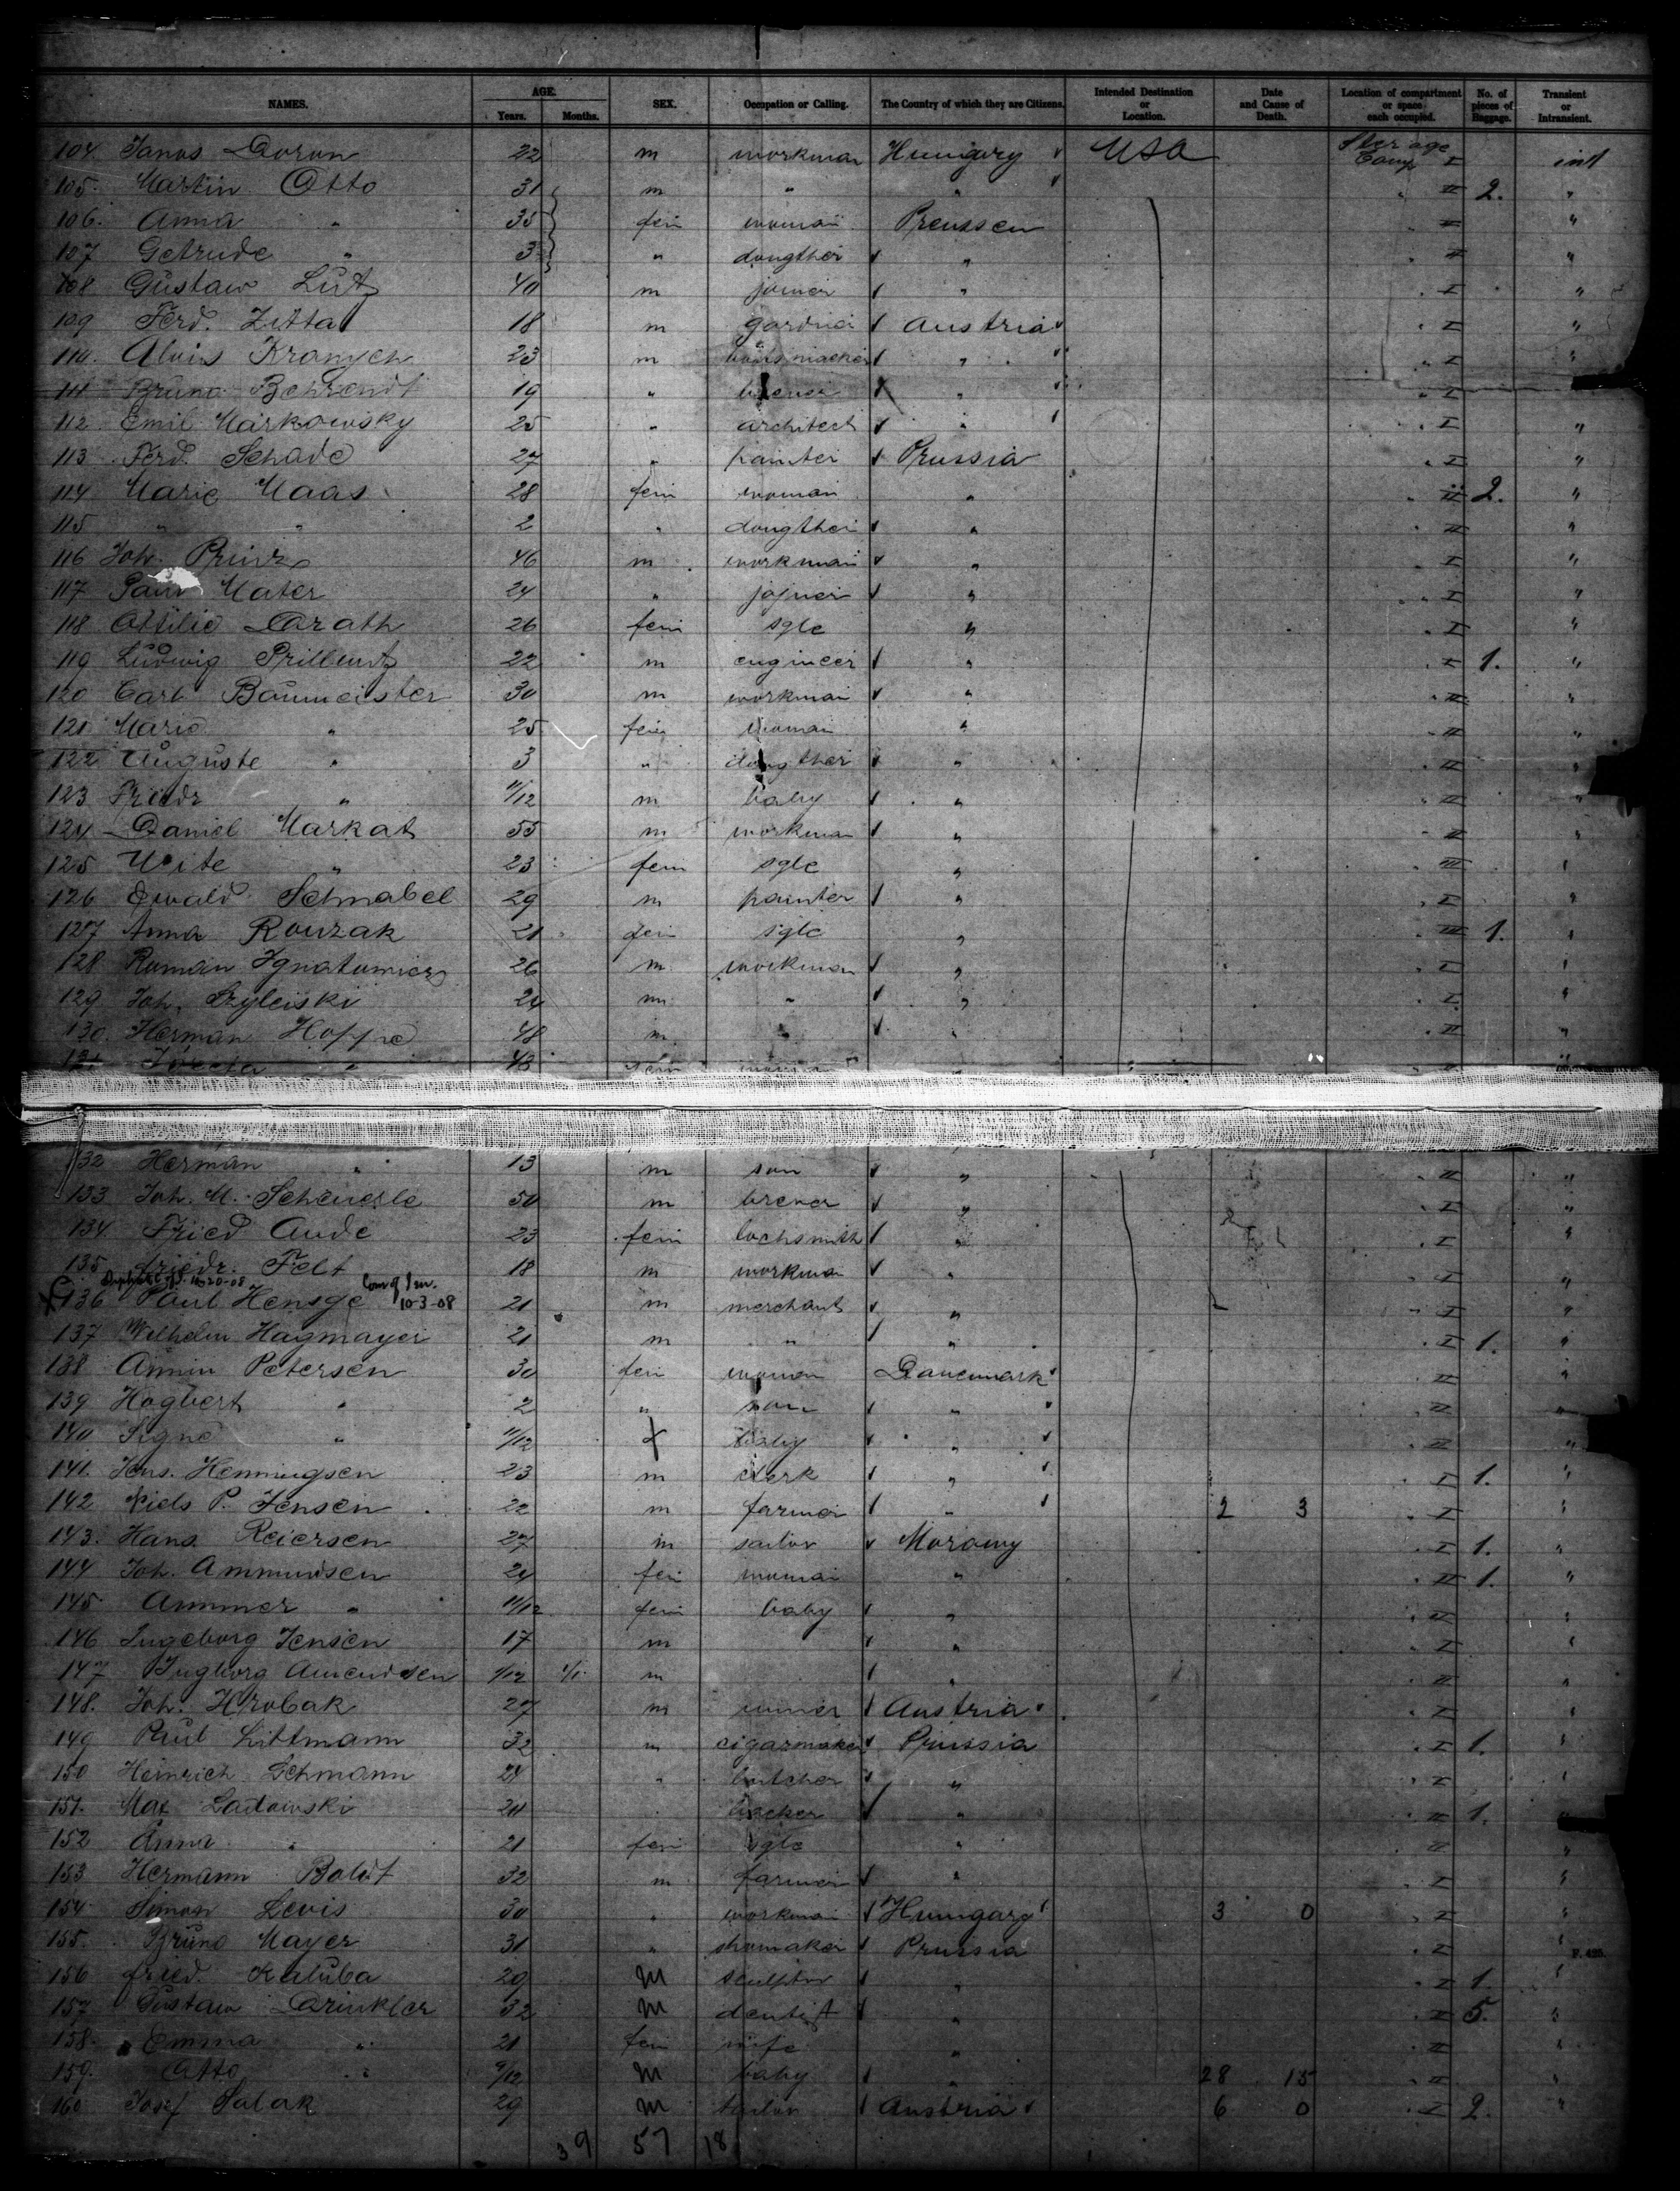 NAMES. AGE. Years. Months. SEX. Occupation or Calling. The Country of which they are Citizens. Intended Destination or Location. Date and Cause of Death. Location of compartment or space each occupied. No. of pieces of Baggage. Transient or Intransient.
104. Janos Doron 22 m workman Hungary USA Sterage Comp I int
105. Martin Otto 31 m " " " II 2. "
106. Anna " 35 fem woman Preussen II "
107 Getrude " 3 " dougther " II "
108 Gustaw Lutz 40 m joiner " I "
109 Ferd. Zitta 18 m gardner Austria I "
110. Alois Kranych 23 m " I "
111 Bruno Behrendt 19 " brewer " I
112 Emil Markowsky 25 " architect " I "
113 Ferd. Schade 27 " painter Prussia I "
114 Marie Maas 28 fem woman " II 2. "
115 " " 2 " dougther " II "
116 Joh. Prinz 46 m workman " I "
117 Paul Mater 24 " joiner " I "
118 Ottilie Darath 26 fem sgle " I "
119 Ludwig Prillwitz 22 m engineer " I 1. "
120 Carl Baumeister 30 m workman " II "
121 Marie " 25 fem woman " II "
122 Auguste " 3 " dougther " II "
123 Friedr " 11/12 m baby " II "
124 Daniel Markat 55 m workman " II "
125 " 23 fem sgle " III "
126 Ewald Schnabel 29 m painter " I "
127 Anna Rouzak 21 fem sgle " III 1. "
128 Roman Ignatowicz 26 m workman " I "
129 Joh. 24 m " " I "
130. Herman Hoppe 48 m " " II "
131 " 43 fem woman " II "
132 Herman " 13 m son " II "
133 Joh. M. Scheuerle 50 m brewer " I "
134 Fried Aude 23 fem lochsmith " I "
135 friedr. Felt 18 m workman " I "
Duplicate 11-20-08
136 Paul Hensge 10-3-08 21 m merchant " I "
137 Wilhelm Hagmayer 21 m " " I 1. "
138 Petersen 30 fem woman Danemark II "
139 Hogbert " 2 " son " II "
140 Signe " 11/12 f baby " II "
141. Jens. Henningsen 23 m clerk " I 1. "
142 Niels P. Jensen 22 m farmer " 2 3 I "
143. Hans Reiersen 27 m sailor Morowy I 1. "
144 Joh. Ammundsen 24 fem woman " II 1. "
145 Ammmer " 11/12 fem baby " II "
146 Ingeborg Jensen 17 m " I "
147 Ingborg Amendsen 1/12 m " II "
148. Joh. Hrobak 27 m Austria I "
149 Paul Littmann 32 m cigarmaker Prussia I 1. "
150 Heinrich Lehmann 24 " butcher " I "
151. Max 24 " " II 1. "
152 Anna " 21 fem sgle " II "
153 Hermann Boldt 32 m farmer " I "
154 Simon Levis 30 " workman Hungary 3 0 I "
155. Bruno Mayer 31 " shomaker Prussia I "
F. 425.
156 fried. Kaluba 29 m sculptor " I 1. "
157 Gustaw Drinkler 32 m dentist " II 5. "
158. Emma " 21 fem wife " II "
159. Otto " 9/12 m baby " 28 15 II "
160 Josef Salak 29 m tailor Austria 6 0 I 2. "
39 57 18